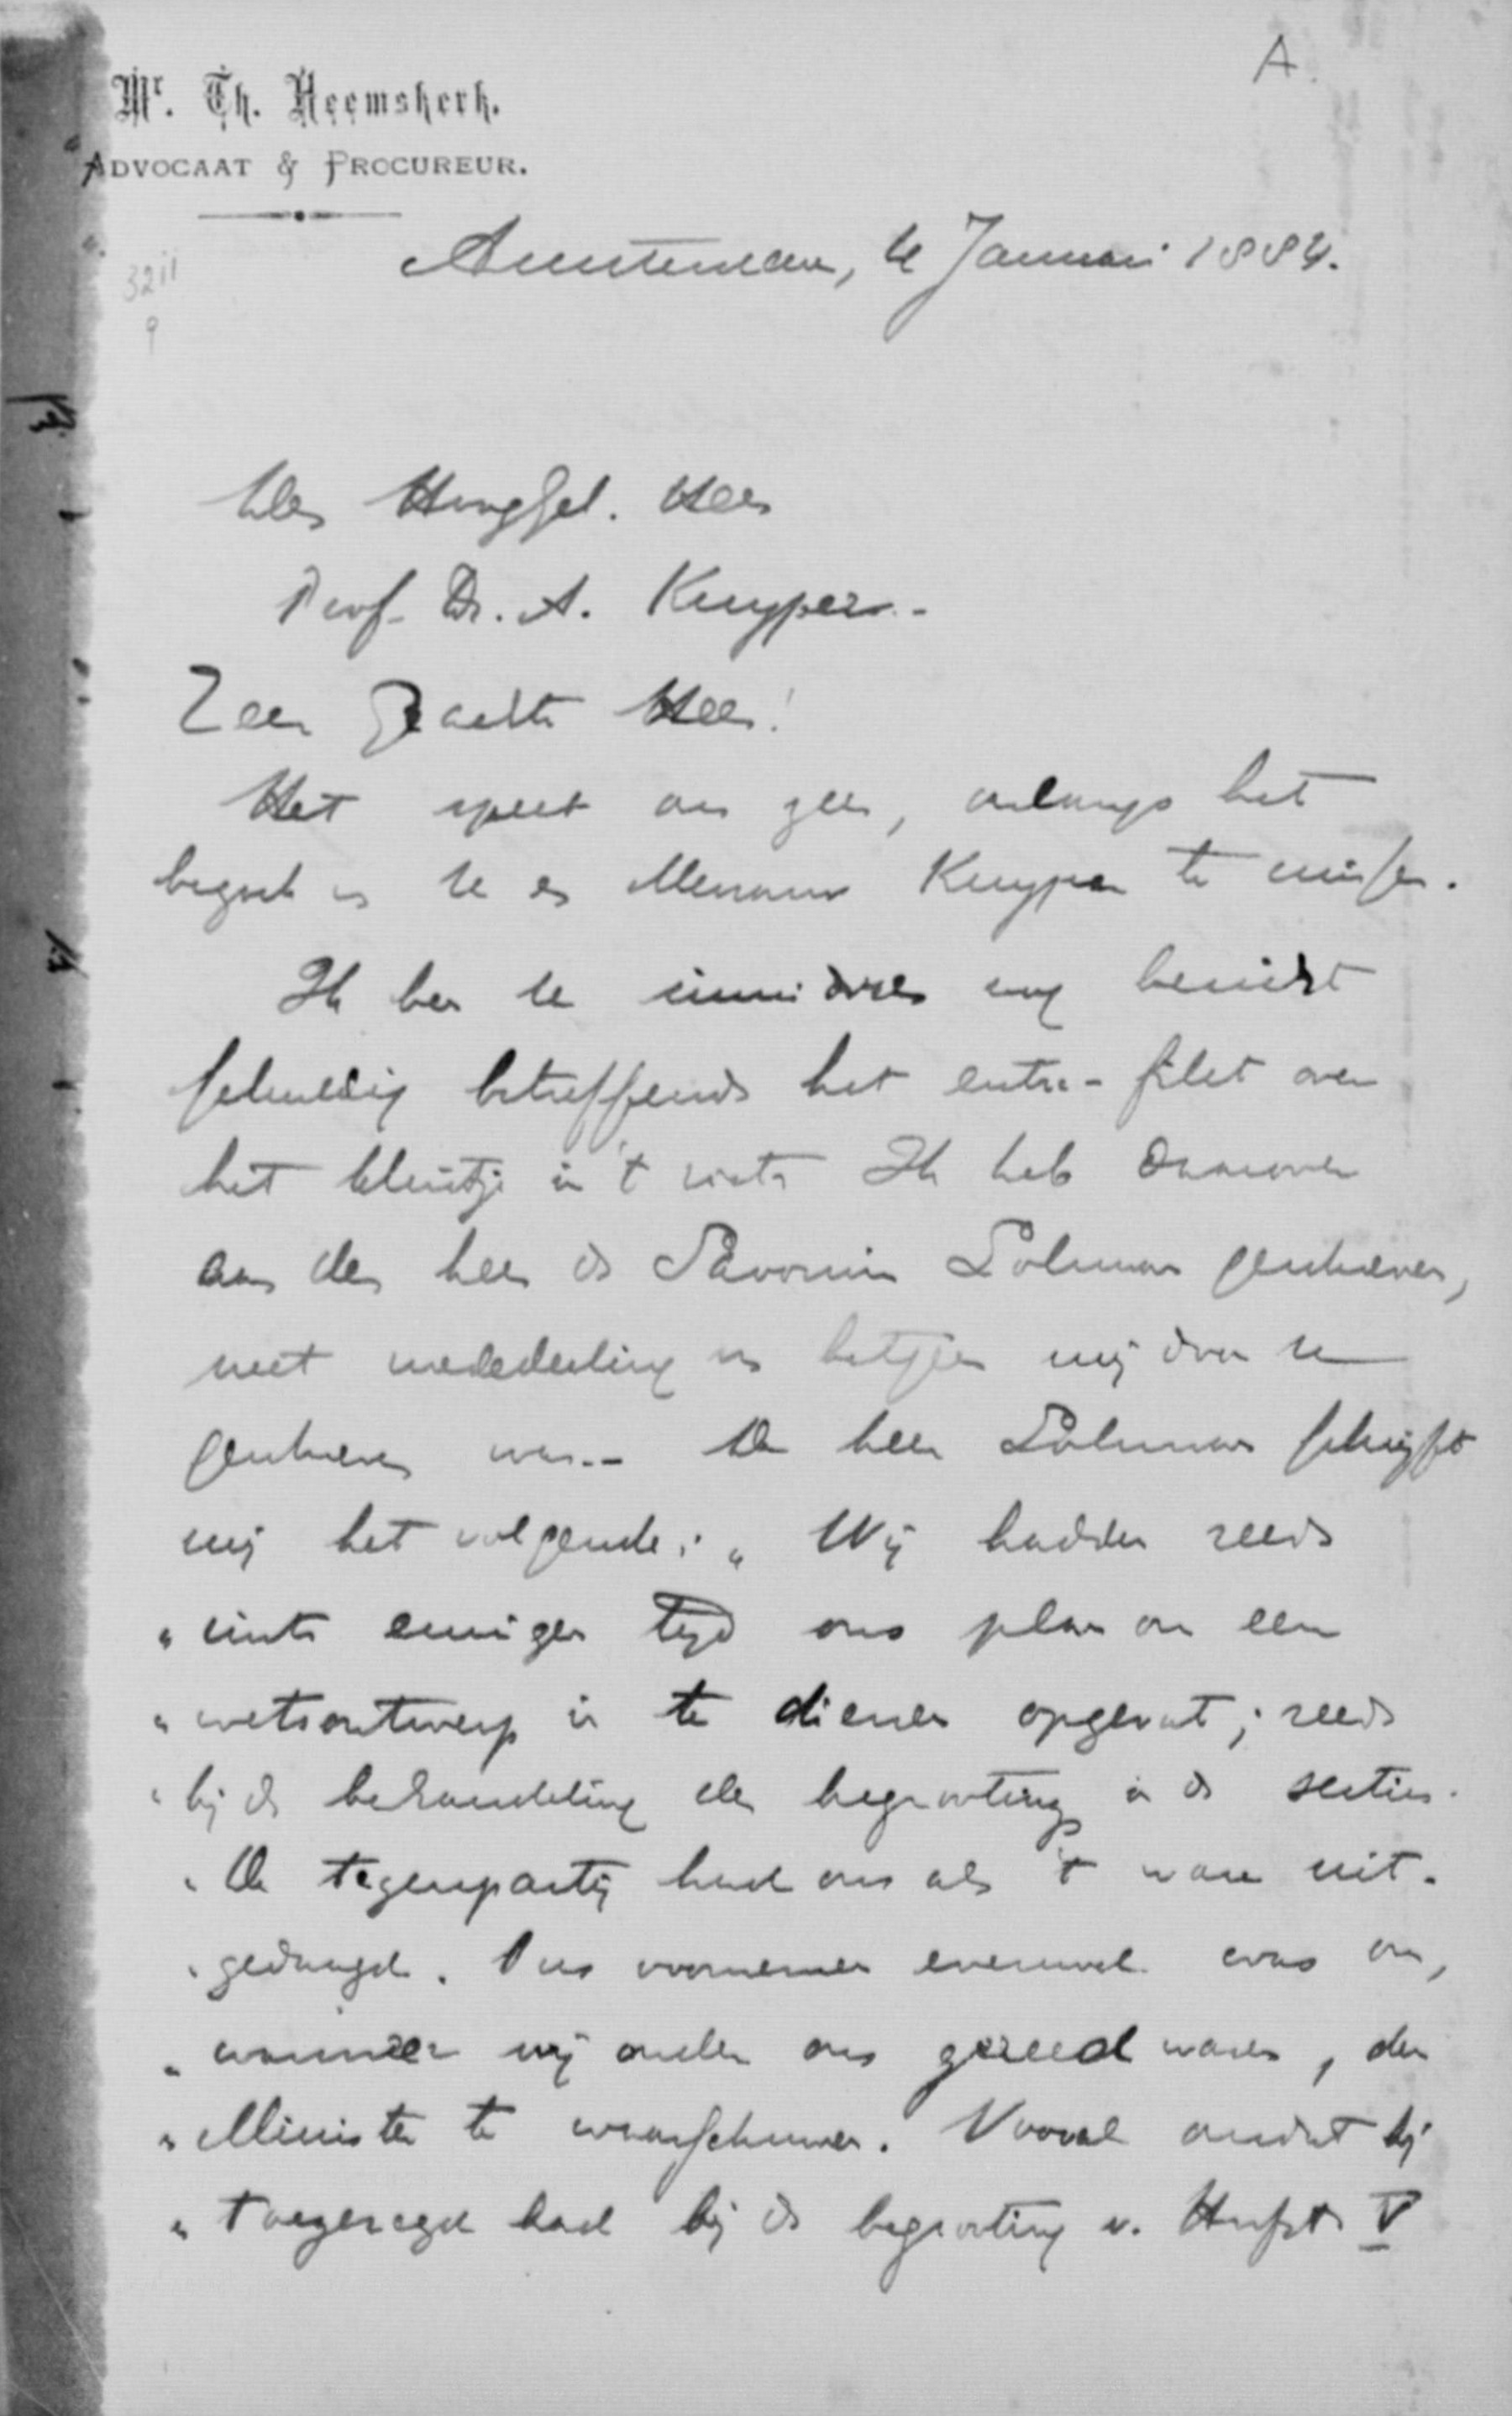 A.
Mr. Th. Heemskerk.
ADVOCAAT & PROCUREUR.
3211
9
Amsterdam, 4 Januari 1884.
Den HoogGel. Heer
Prof. Dr. A. Kuyper.-
Zeer Geachte Heer!
Het speet ons zeer, onlangs het
bezoek v. U en Mevrouw Kuyper te missen.
Ik ben U inmiddels nog bericht
schuldig betreffende het entre-filet over
het kleintje in 't Ik heb daarover
aan den heer de Savornin Lohman geschreven,
met mededeeling v. hetgeen mij door U
geschreven was.- De heer Lohman schrijft
mij het volgende: „ Wij hadden reeds
„ sints eenigen tijd ons plan om een
„ wetsontwerp in te dienen opgevat; reeds
„ bij de behandeling der begrooting in de secties.
„ De tegenpartij had ons als 't ware uit-
„ gedaagd. Ons voornemen evenwel was om,
„ wanneer wij onder ons gereed waren, den
„ Minister te waarschuwen. Vooral omdat hij
„ toegezegd had bij de begrooting v. Hoofdst. V